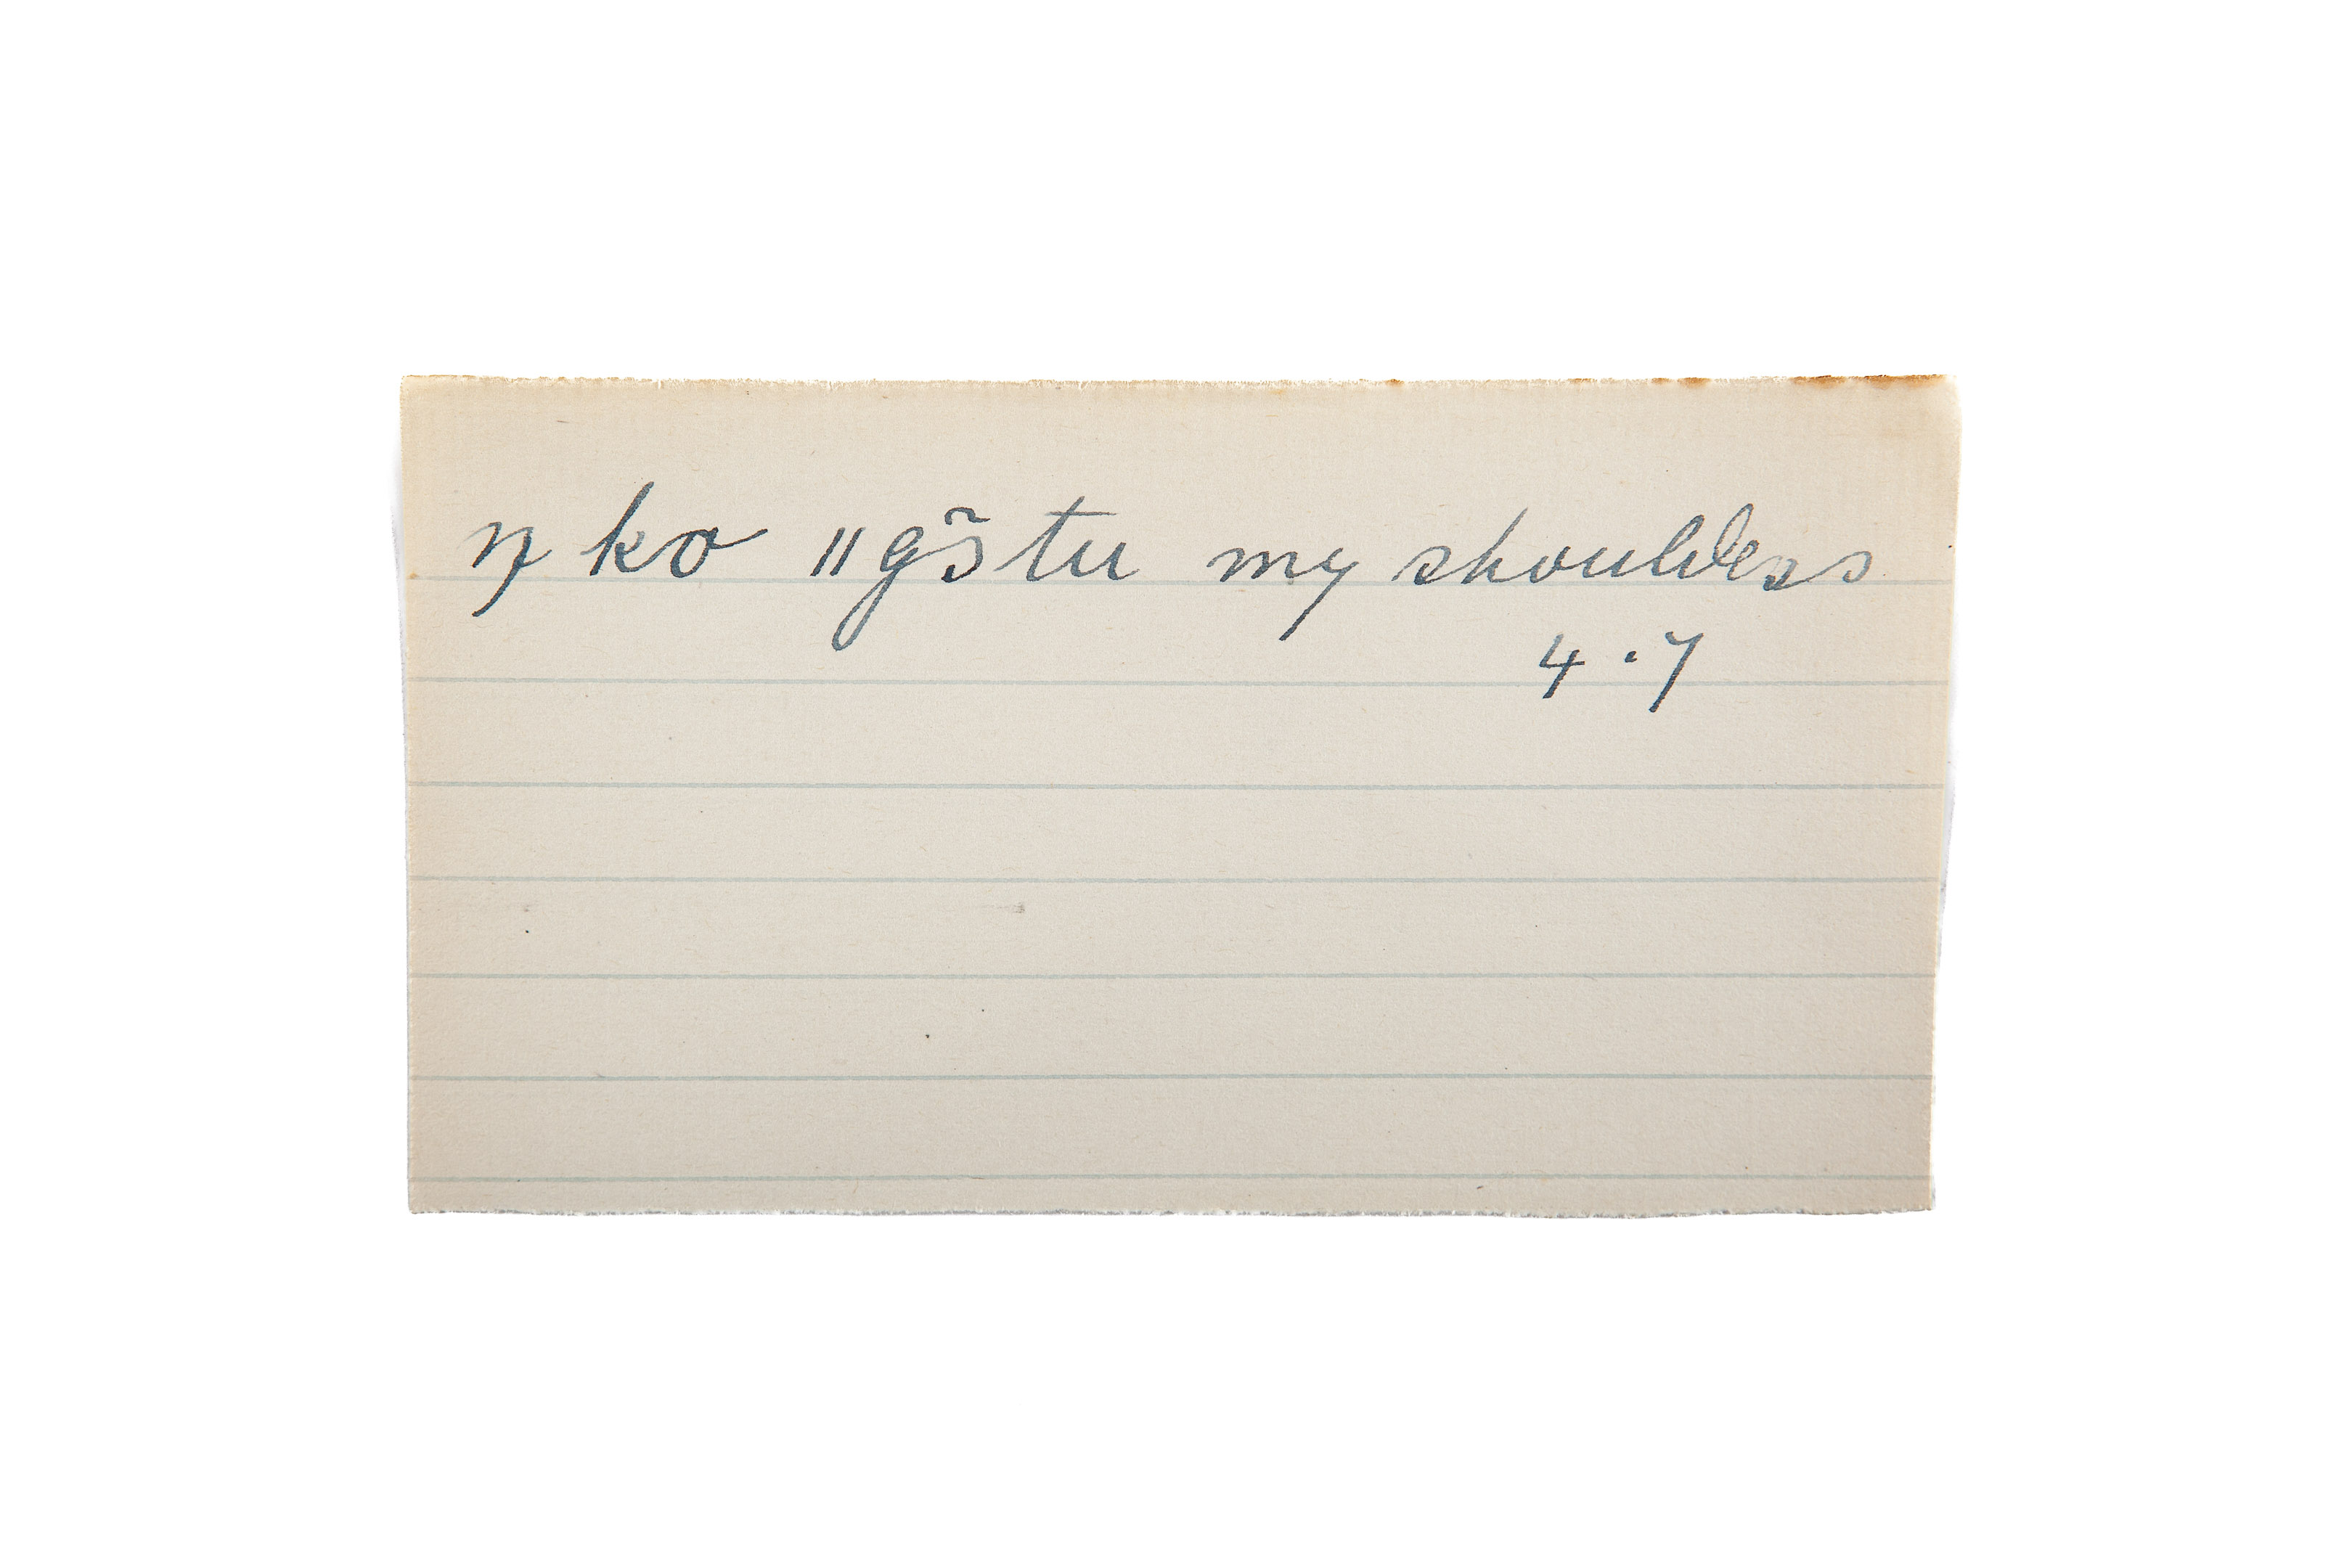 ŋ ko ǁgɔ̃tu my shoulders
4.7